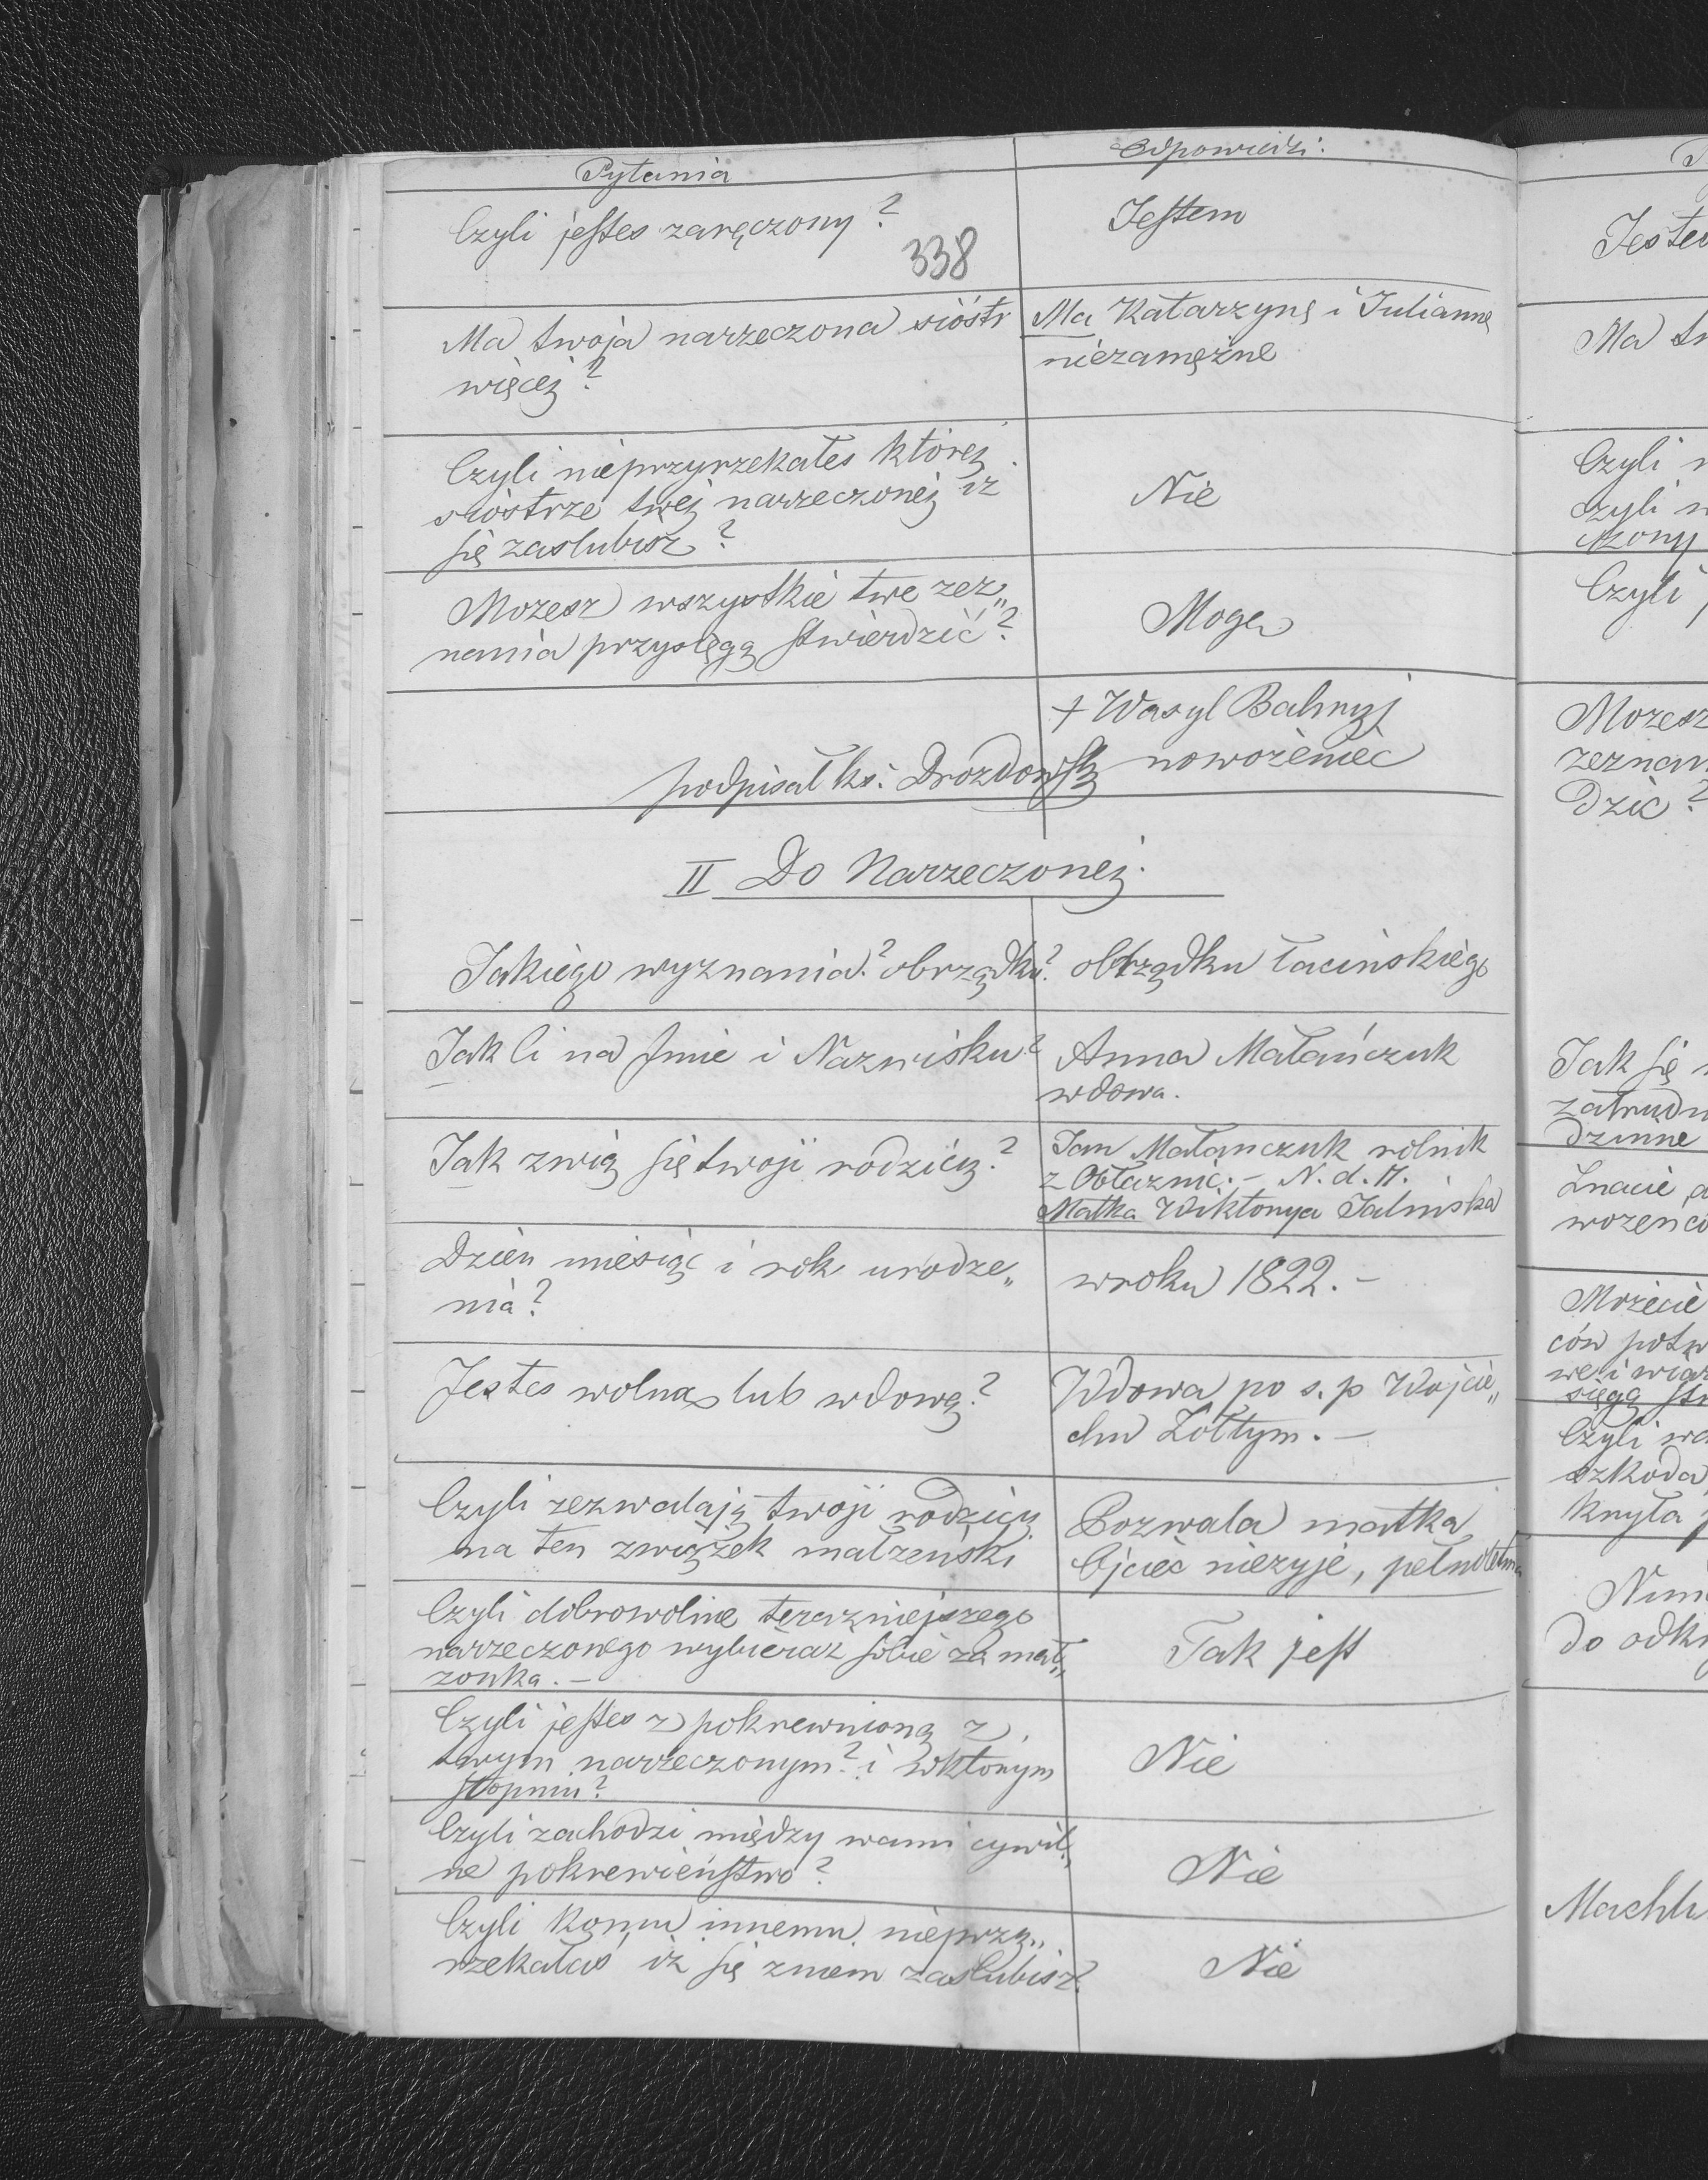 Pytania
Odpowiedzi:
Czyli jestes zaręczony?
Jestem
338
Ma twoja narzeczona sióstr
więcej?
Ma Katarzynę i Juliannę
niezamężne
Czyli nieprzyrzekałes której
siostrze twej narzeczonej iż
się zaslubisz?
Nie
Mozesz wszystkie twe zez„
nania przysięgą stwierdzić?
Moge
+ Wasyl Bahryj
nowożeniec
podpisał ks. Drozdowski
II Do Narzeczonej.
Jakiego wyznania? obrządku?
obrządku łacińskiego
Jak Ci na Jmie i Nazwisku?
Anna Małańczuk
wdowa.
Jak zwią się twoji rodzicy?
Jan Małanczuk rolnik
z Obłaznic. – N. d. 17.
Matka Wiktorya
Dzień miesiąc i rok urodze„
nia?
w roku 1822. –
Jestes wolna lub wdową?
Wdowa po s. p Wojcie„
chu Żółtym. –
Czyli zezwalają twoji rodzicy
na ten związek małzeński
Pozwala matka,
Ojciec niezyje, pełnoletnia
Czyli dobrowolnie terazniejszego
narzeczonego wybierasz sobie za mał„
zonka. –
Tak jest
Czyli jestes z pokrewnioną z
twym narzeczonym? i w którym
stopniu?
Nie
Czyli zachodzi między wami cywil„
ne pokrewieństwo?
Nie
Czyli Komu innemu nieprzy„
rzekałaś iż się zniem zaslubisz?
Nie
Jeste
Ma tw
Czyli n
czyli w
czony
Czyli p
Mozesz
zeznan
dzić?
Jak się n
zatrudn
dzinne
Znacie
wożenc
Możecie
ców potw
we i wiar
sięgą st
Czyli wa
szkoda
knyła
do odk